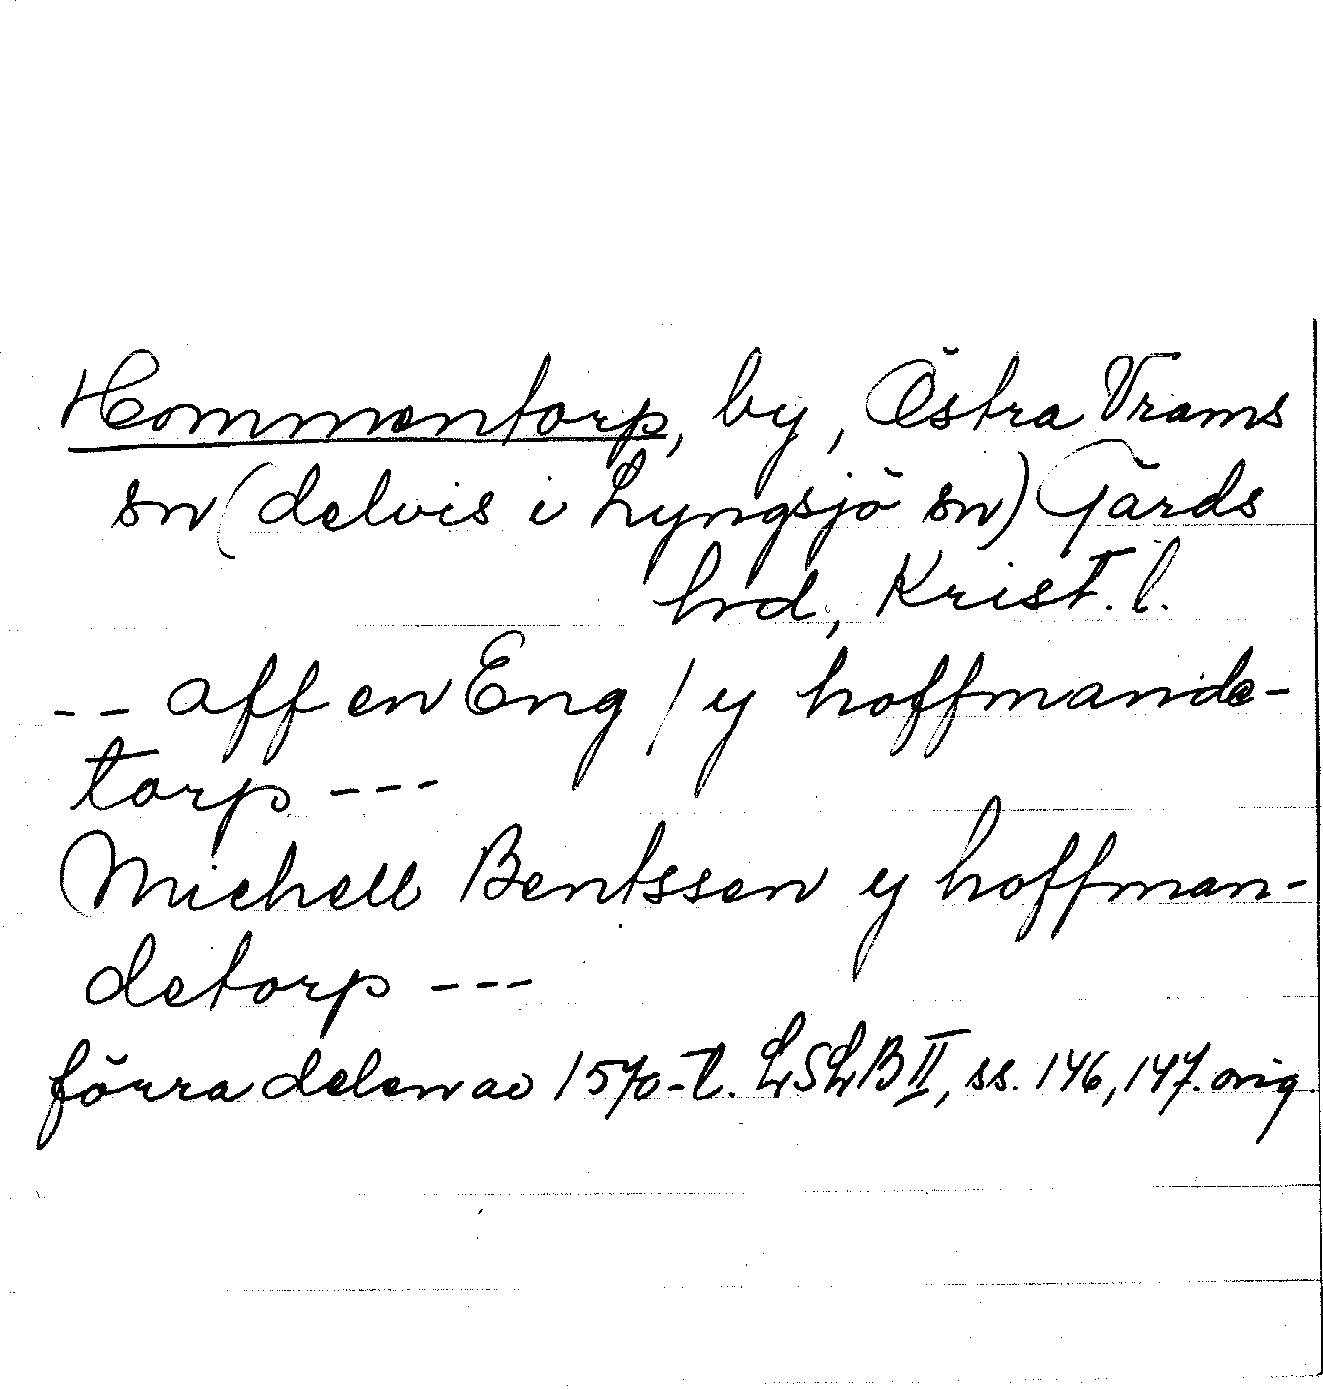 Hommentorp, by, Östra Vrams
sn (delvis i Lyngsjö sn) Gärds
hrd, Krist. l.
-- aff en Eng / y hoffmande-
torp ---
Michell Bentssen y hoffman-
detorp ---
förra delen av 1570-t. LSLB II, ss. 146, 147. orig.